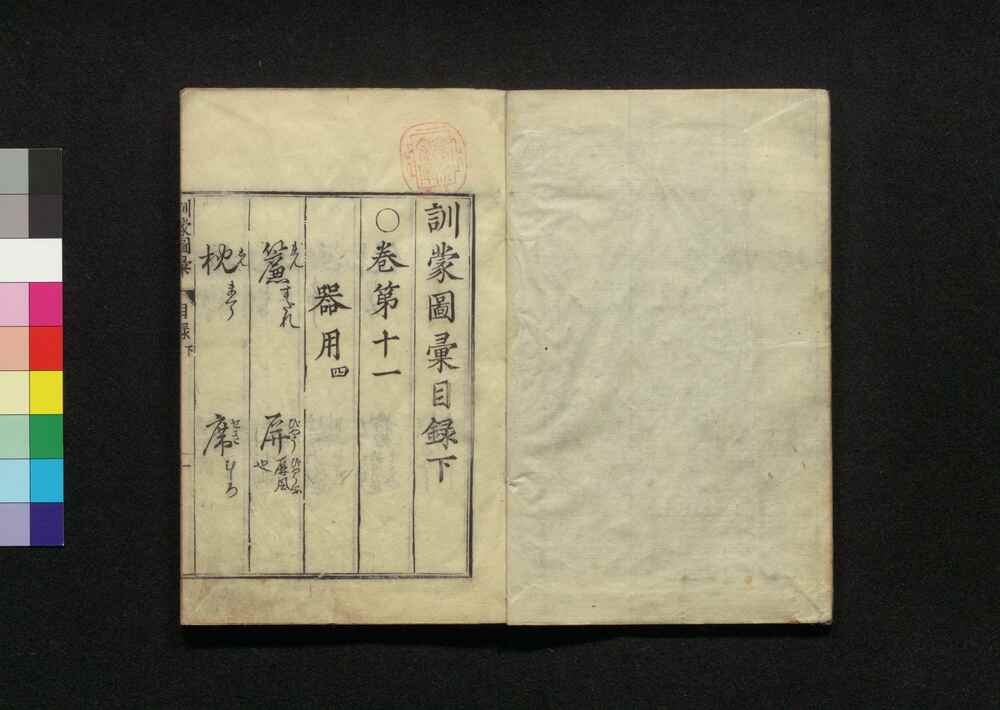 訓蒙圖彙目録下
○卷第十一
器用四
簾 れん すだれ
屏 びやう びやうぶ 屏風也
枕 ちん まくら
席 せき むしろ
訓蒙圖彙 目録下 一